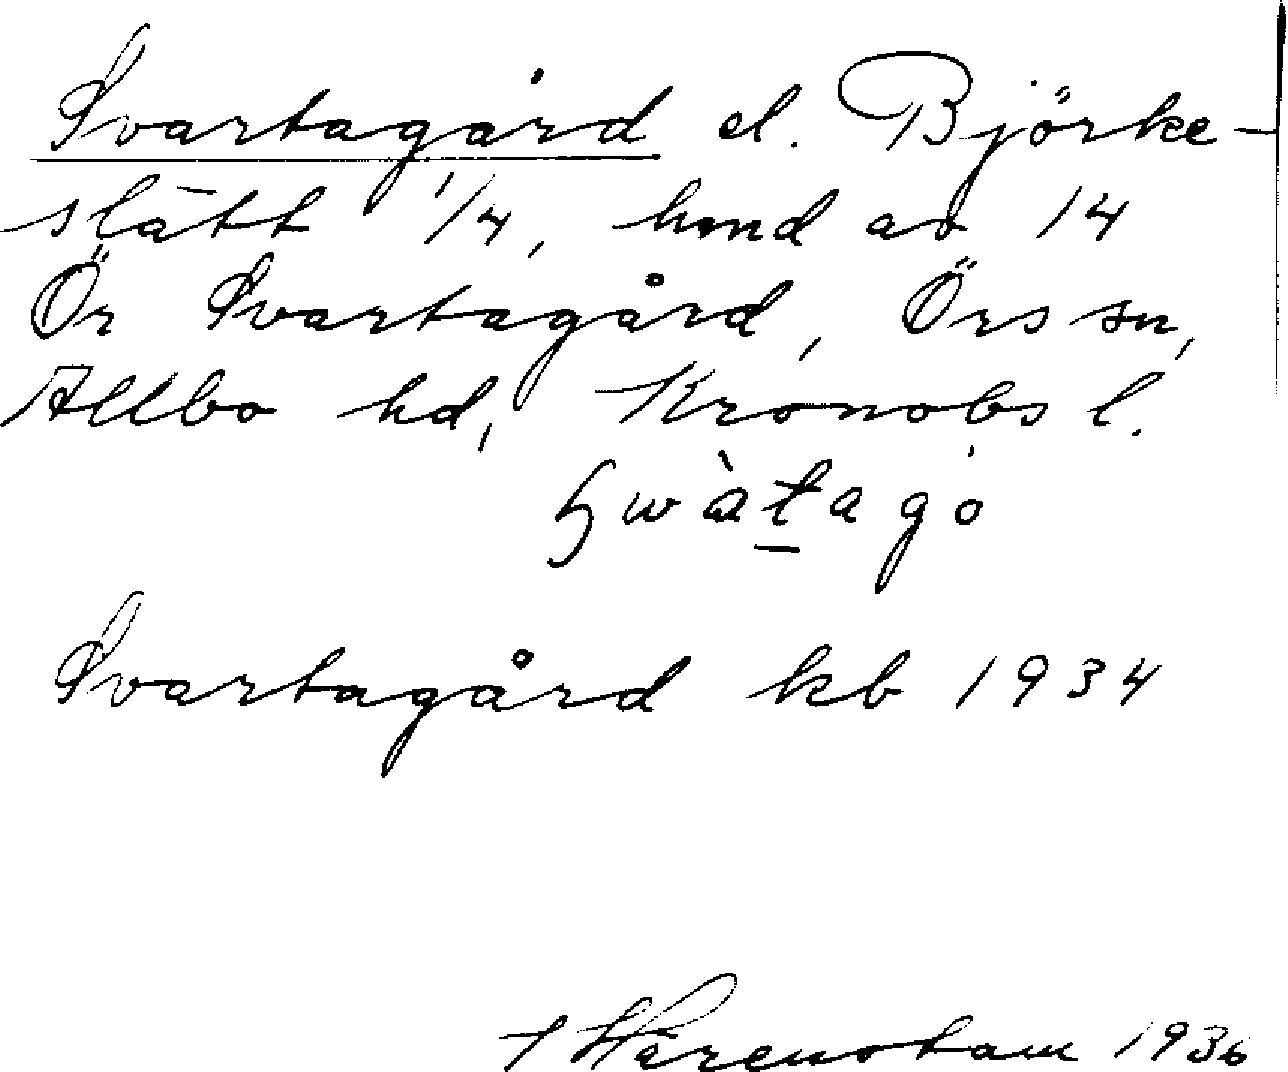 Svartagård el. Björke-
slätt 1/4, hmd av 14
Ör Svartagård, Örs sn,
Allbo hd, Kronobs l.
Svartagård kb 1934
Härenstam 1936